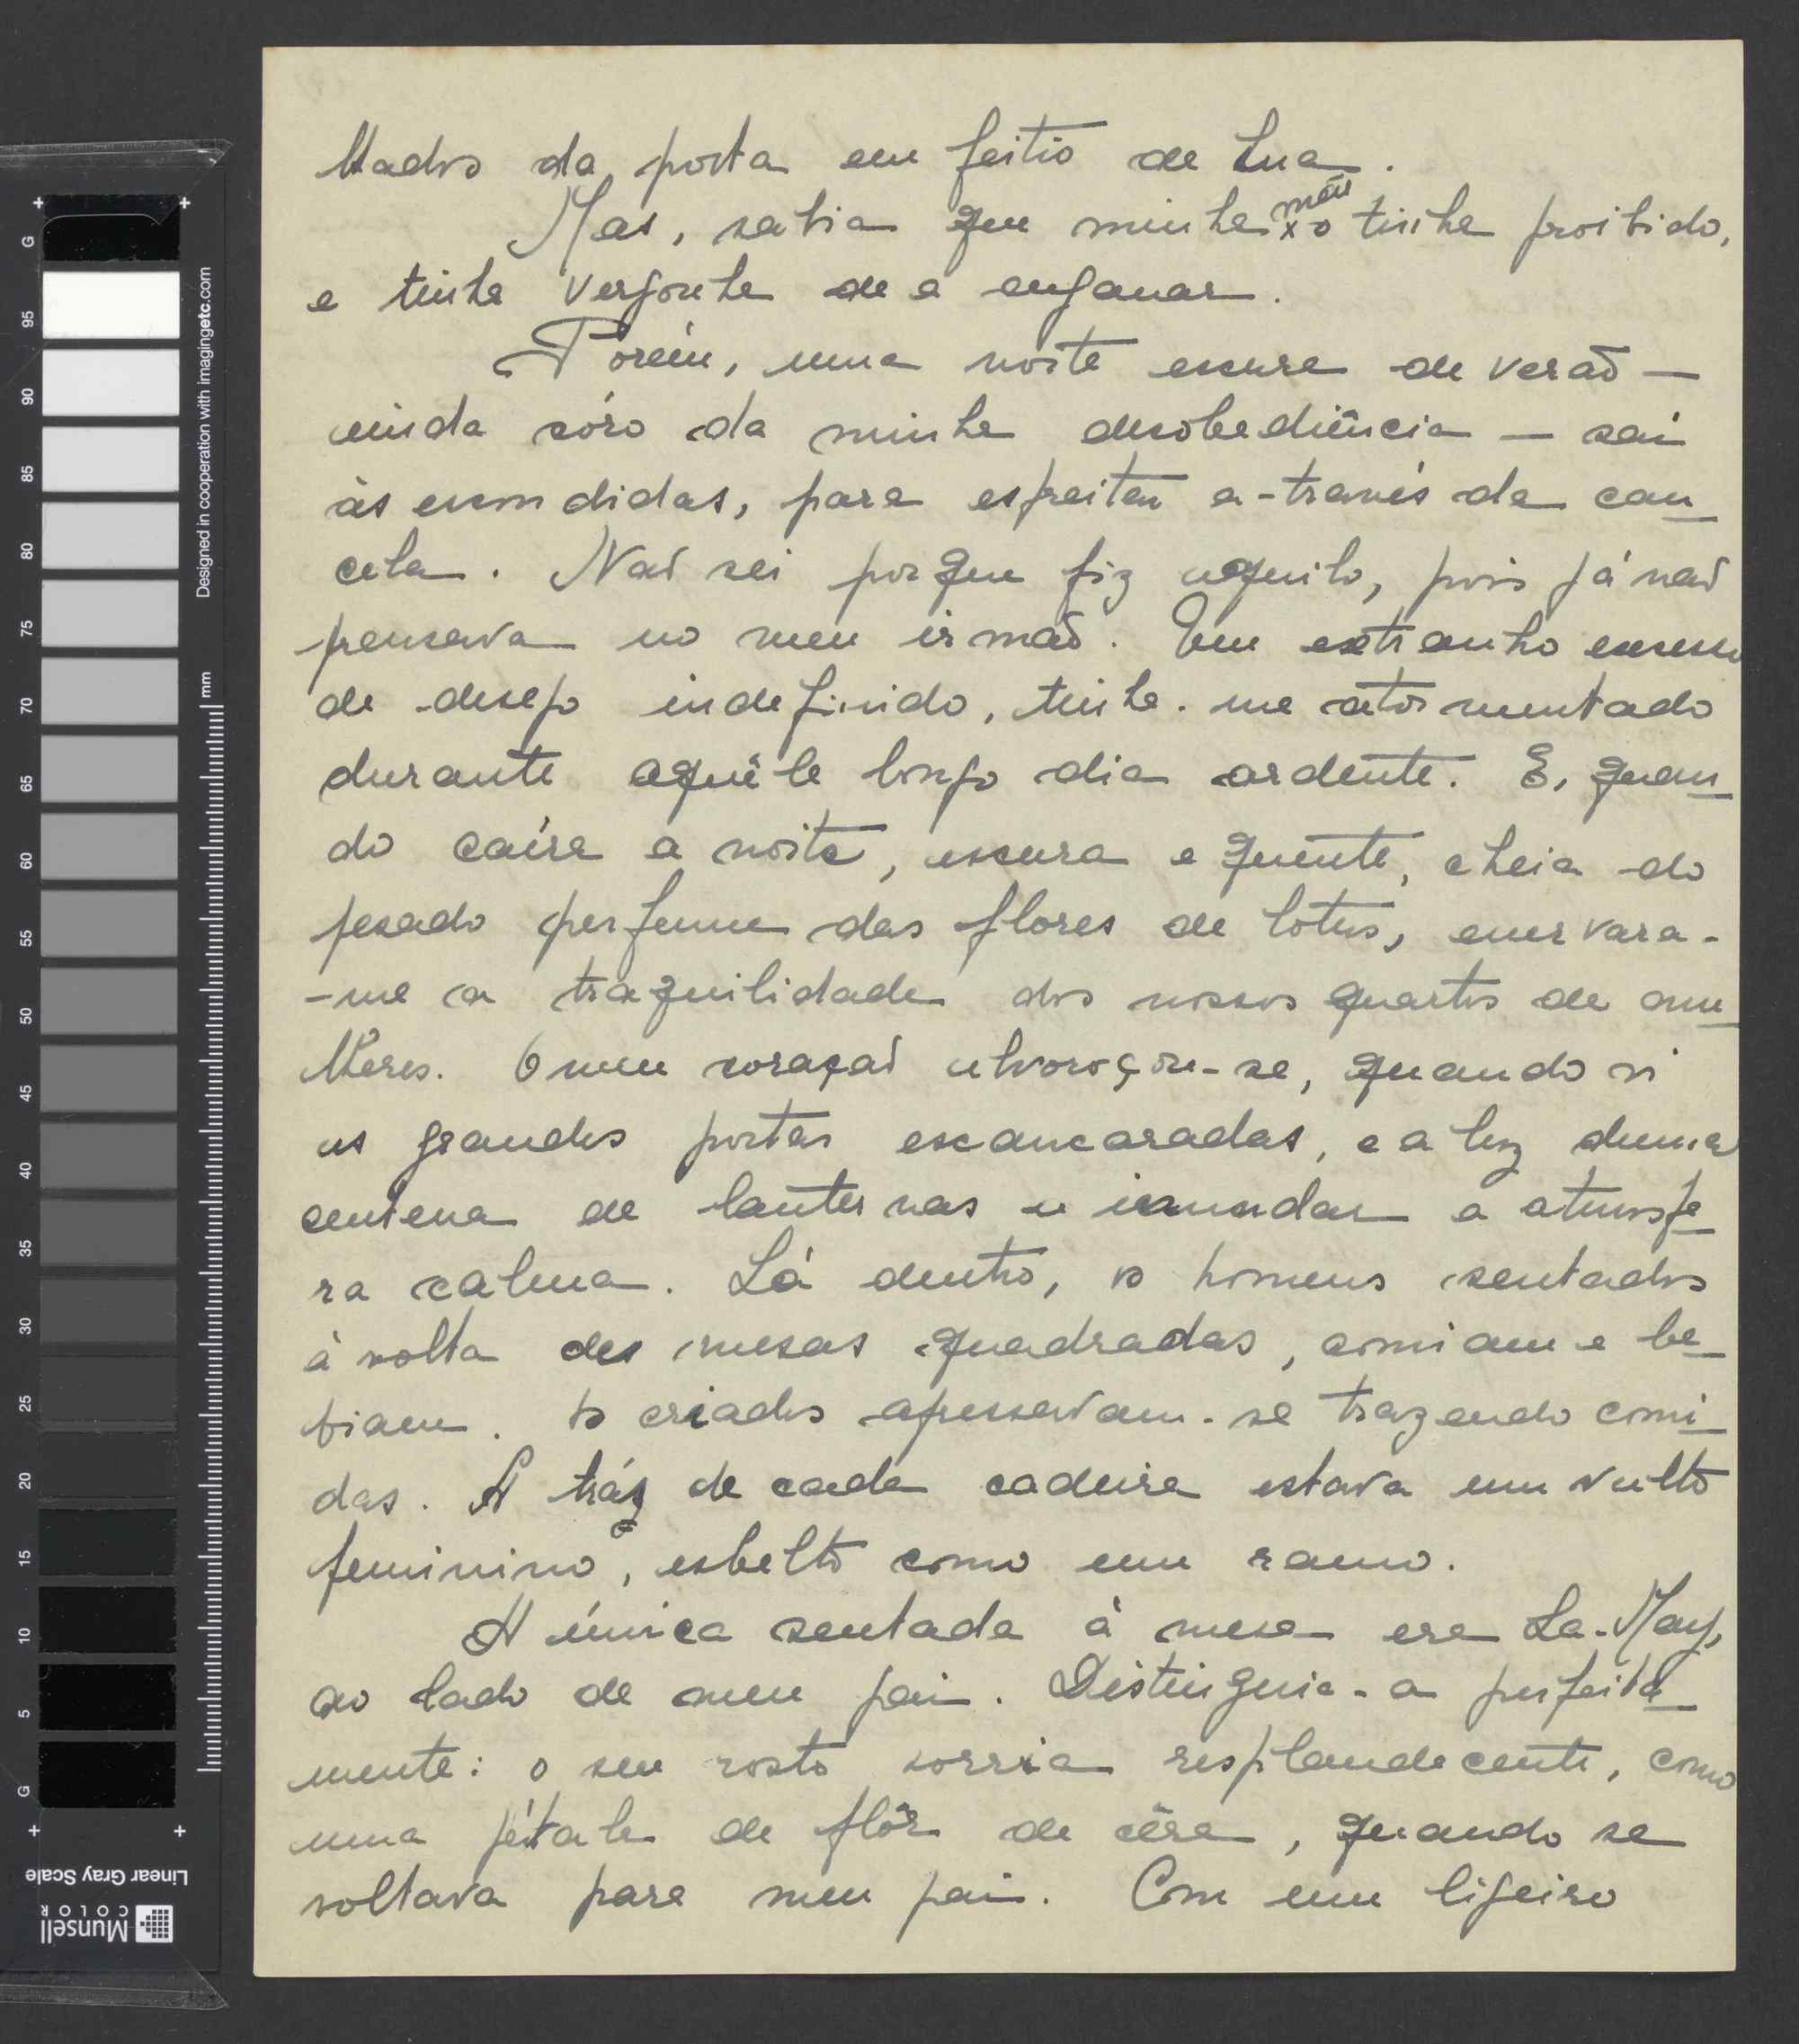 lhados da porta em feitio de Lua.
Mas, sabia que minha mãi
x o tinha proibido,
e tinha vergonha de a enganar.
Porém, uma noite escura de verão —
ainda córo da minha desobediência — saí
às escondidas, para espreitar a-través da can
cela. Não sei porque fiz aquilo, pois já não
pensava no meu irmão. Um extranho excesso
de desejo indefinido, tinha-me atormentado
durante aquêle longo dia ardente. E, quan
do caíra a noite, escura e quente, cheia do
pesado perfume das flores de lotus, enervara-
-me a traquilidade dos nossos quartos de mu
lheres. O meu coração alvoroçou-se, quando vi
as grandes portas escancaradas, e a luz duma
centena de lanternas a inundar a atmosfe
ra calma. Lá dentro, os homens sentados
à volta das mesas quadradas, comiam e be
biam. Os criados apressavam-se trazendo comi
das. A tráz de cada cadeira estava um vulto
feminino, esbelto como um ramo.
A única sentada à mesa era La-May,
ao lado de meu pai. Distinguia-a perfeita
mente: o seu rosto sorria resplandecente, como
uma pétala de flôr de cêra, quando se
voltava para meu pai. Com um ligeiro
G
95
90
85
80
75
70
65
60
55
50
45
40
35
30
25
20
15
10
5
G
mm
Designed in cooperation with imagingetc.com
Linear Gray Scale
Munsell
COLOR